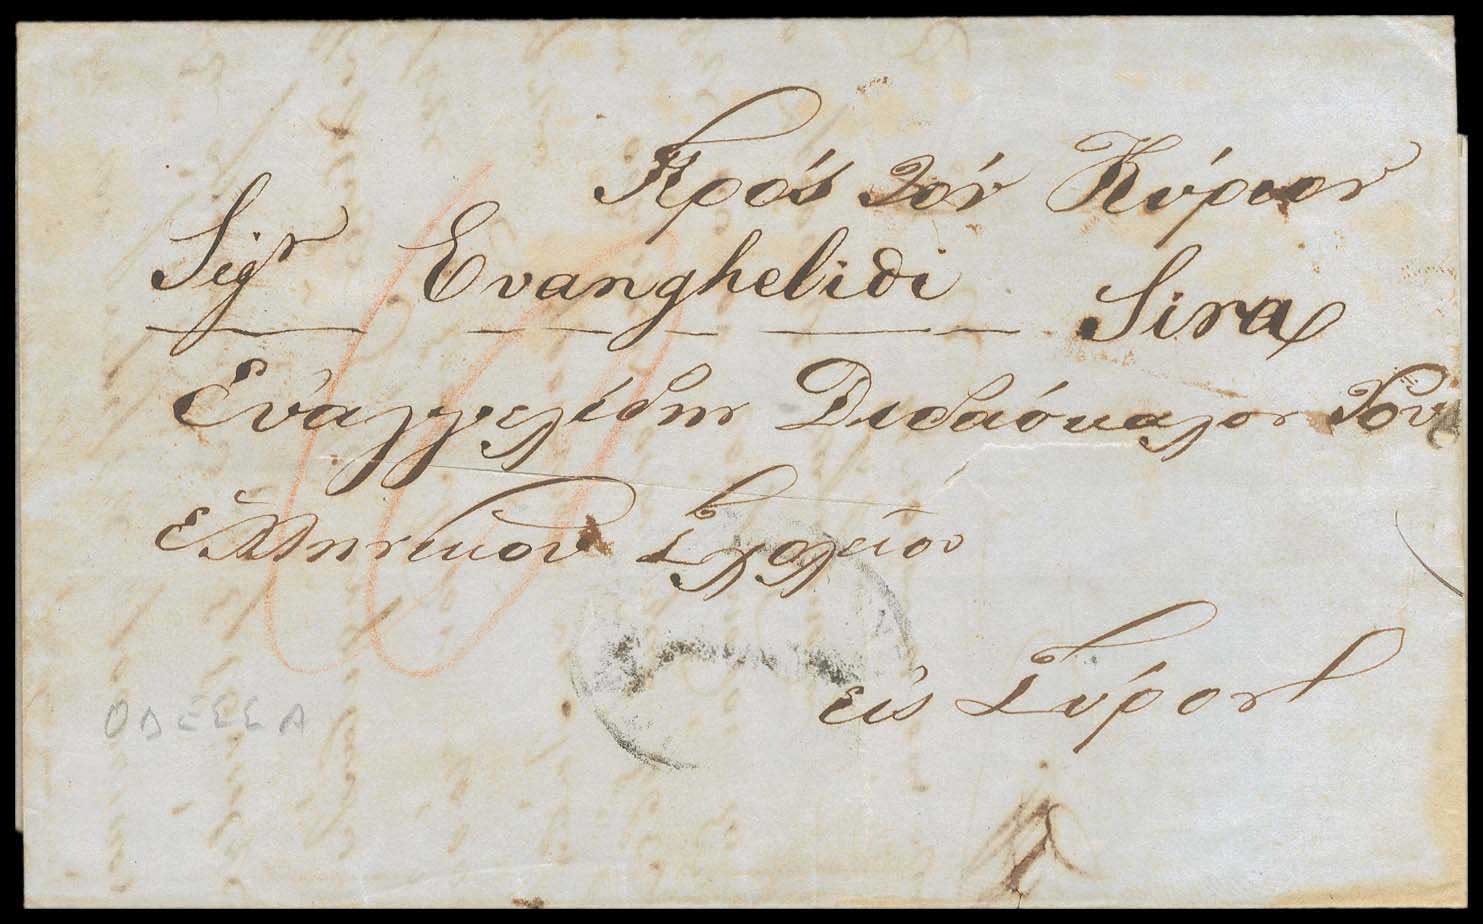 Πρός τόν Κύριον
Sigr Evanghelidi Sira
Ευαγγελίδην Διδάσκαλον του
ελληνικού Σχολείου
εις Σύρον
ODESSA